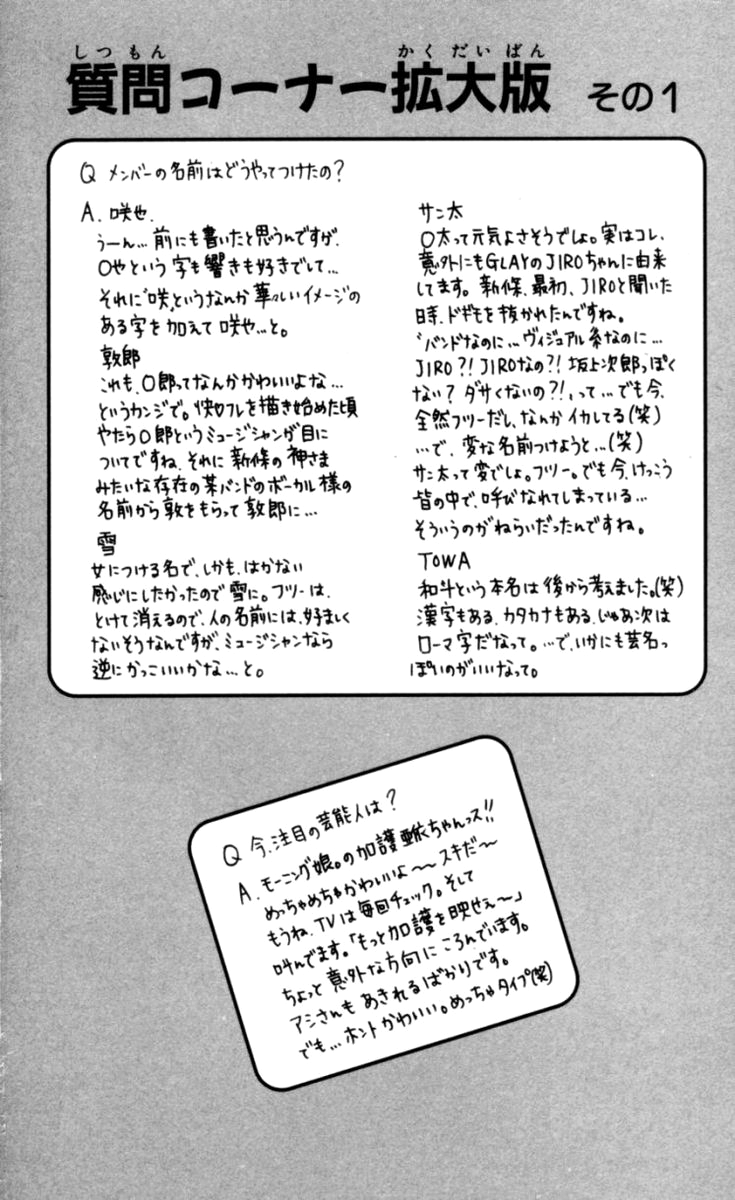 しつもん かくだいばん
質問コーナー拡大版 その1
Q メンバーの名前はどうやってつけたの?
A. 咲也.
うーん…前にも書いたと思うんですが、
○やという字も響きも好きでして…
それに〝咲〟というなんか華々しいイメージの
ある字を加えて咲や…と。
敦郎
これも、○郎ってなんかかわいいよな…
というカンジで。快カレを描き始めた頃
やたら○郎というミュージシャンが目に
ついてですね、それに新條の神さま
みたいな存在の某バンドのボーカル様の
名前から敦をもらって敦郎に…
雪
女につける名で、しかも、はかない
感じにしたかったので雪に。フツーは、
とけて消えるので、人の名前には、好ましく
ないそうなんですが、ミュージシャンなら
逆にかっこいいかな…と。
サン太
○太って元気よさそうでしょ。実はコレ、
意外にもGLAYのJIROちゃんに由来
してます。新條、最初、JIROと聞いた
時、ドギモを抜かれたんですね。
〝バンドなのに…ヴィジュアル系なのに…
JIRO?!JIROなの?!坂上次郎っぽく
ない?ダサくないの?!〟って…でも今、
全然フツーだし、なんかイカしてる(笑)
…で、変な名前つけようと…(笑)
サン太って変でしょ。フツー。でも今、けっこう
皆の中で、呼びなれてしまっている…
そういうのがねらいだったんですね。
TOWA
和斗という本名は後から考えました。(笑)
漢字もある、カタカナもある、じゃあ次は
ローマ字だなって。…で、いかにも芸名っ
ぽいのがいいなって。
Q 今、注目の芸能人は?
A. モーニング娘。の加護亜依ちゃんっス!!
めっちゃめちゃかわいいよ〜〜スキだ〜
もうね、TVは毎回チェック。そして
叫んでます。「もっと加護を映せぇ〜」
ちょっと意外な方向にころんでいます。
アシさんもあきれるばかりです。
でも…ホントかわいい。めっちゃタイプ(笑)